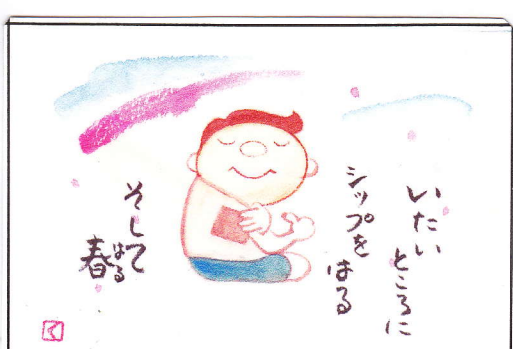 いたい
ところに
シップを
はる
そして
はる
春
く